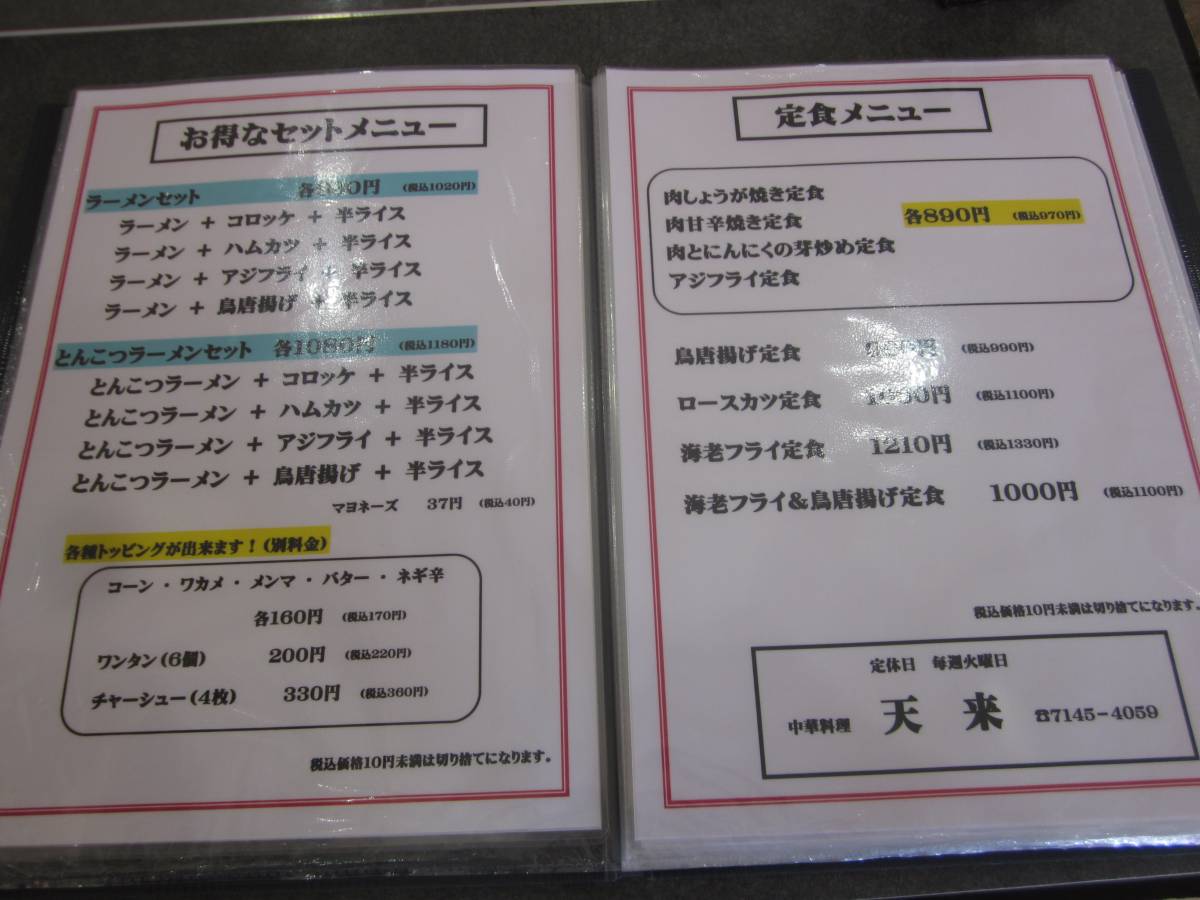 お得なセットメニュー
ラーメンセット (税込1020円)
ラーメン + コロッケ + 半ライス
ラーメン + ハムカツ + 半ライス
ラーメン + アジフライ + 半ライス
ラーメン + 鳥唐揚げ + 半ライス
とんこつラーメンセット 各1080円 (税込1180円)
とんこつラーメン + コロッケ + 半ライス
とんこつラーメン + ハムカツ + 半ライス
とんこつラーメン + アジフライ + 半ライス
とんこつラーメン + 鳥唐揚げ + 半ライス
マヨネーズ 37円 (税込40円)
各種トッピングが出来ます!(別料金)
コーン・ワカメ・メンマ・バター・ネギ辛
各160円 (税込170円)
ワンタン(6個) 200円 (税込220円)
チャーシュー(4枚) 330円 (税込360円)
税込価格10円未満は切り捨てになります。
定食メニュー
肉しょうが焼き定食
肉甘辛焼き定食 各890円 (税込970円)
肉とにんにくの芽炒め定食
アジフライ定食
鳥唐揚げ定食 (税込990円)
ロースカツ定食 (税込1100円)
海老フライ定食 1210円 (税込1330円)
海老フライ&鳥唐揚げ定食 1000円 (税込1100円)
税込価格10円未満は切り捨てになります。
定休日 毎週火曜日
中華料理 天来 ☎7145-4059